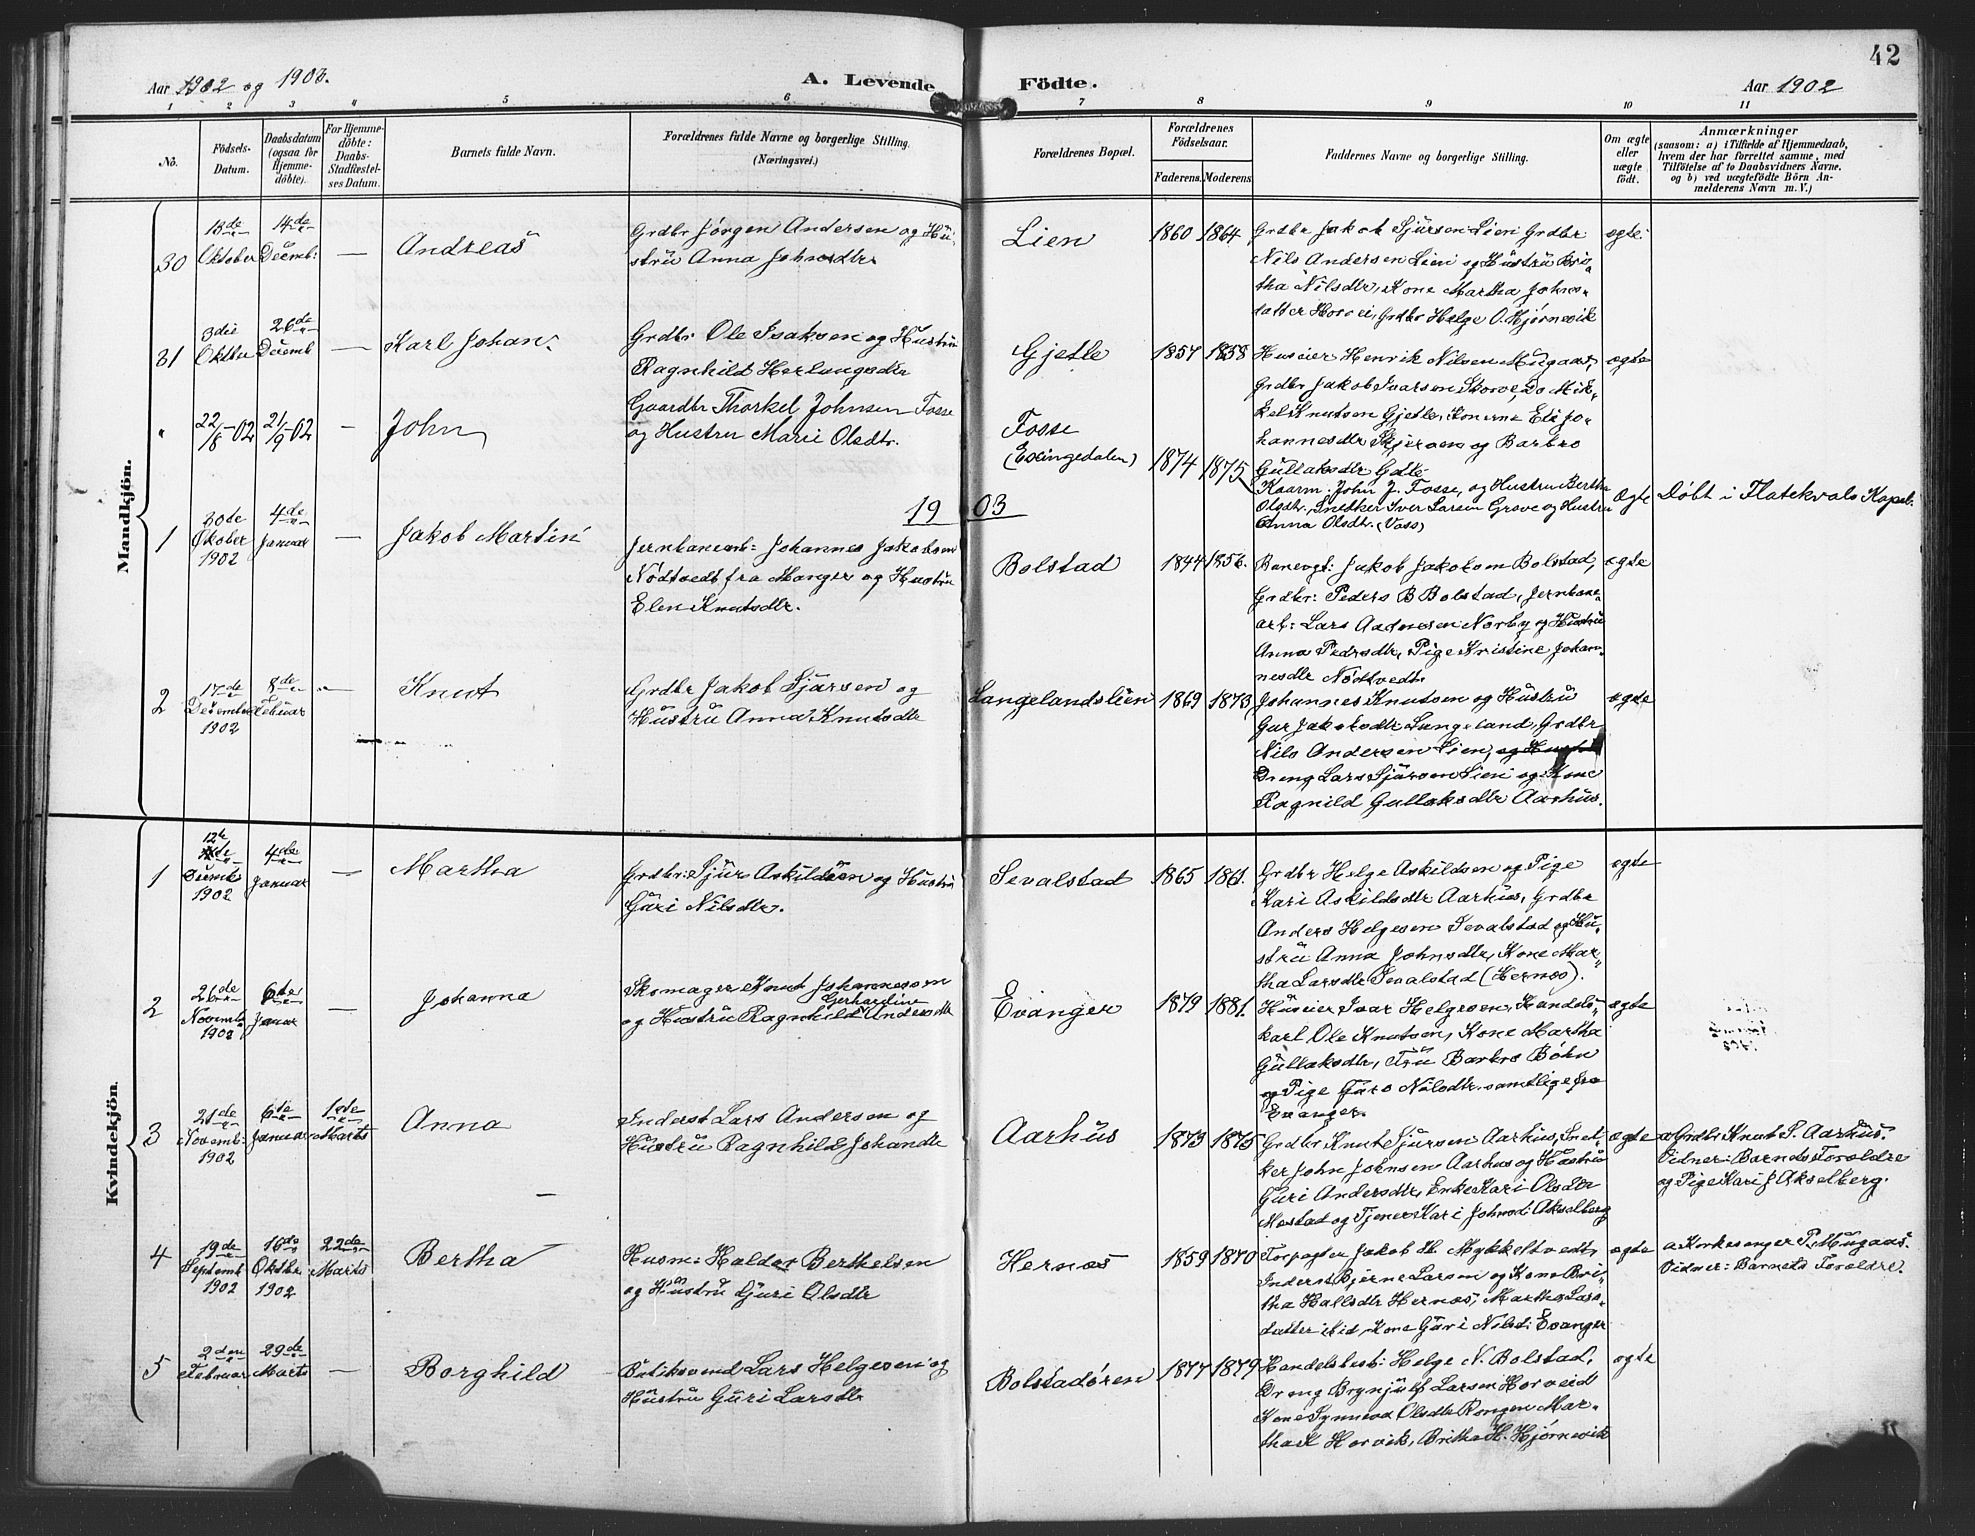 42
Aar 1902 og 1903.
A. Levende Födte.
Aar 1902
1 2 3 4 5 6 7 8 9 10 11
No.
Födsels-Datum.
Daabsdatum (ogsaa for Hjemme-döbte).
For Hjemme-döbte: Daabs-Stadfestel-ses Datum.
Barnets fulde Navn.
Forældrenes fulde Navne og borgerlige Stilling.
(Næringsvei.)
Forældrenes Bopæl.
Forældrenes Födselsaar.
Faderens. Moderens.
Faddernes Navne og borgerlige Stilling.
Om ægte eller uægte födt.
Anmærkninger
(saasom: a) i Tilfælde af Hjemmedaab,
hvem der har forrettet samme, med
Tilföielse af to Daabsvidners Navne.
og b) ved uægtefödte Börn An-
melderens Navn m. V.)
Mandkjön.
30
13de Oktober
14de Decemb:
—
Andreas
Grdbr Jørgen Andersen og Hu-
stru Anna Johnsdtr
Lien
1860 1864
Grdbr Jakob Sjursen Lien Grdbr
Nils Andersen Lien og Hustru Bri-
tha Nilsdtr, Kone Martha Johns-
datter Horvei, Grdbr Helge O. Hjørnevik
ægte
31
3die Oktbr
26de Decemb
—
Karl Johan
Grdbr Ole Isaksen og Hustru
Ragnhild Herlaugsdtr
Gjetle
1857 1858
Huseier Henrik Nilsen Mugaas,
Grdbr Jakob Ivarsen Skorve, Do Mik-
kel Knutsen Gjetle, Konerne Eli Jo-
hannesdtr Skjerven og Barbro
Gullaksdtr Gjetle
ægte
"
22/8-02
21/9-02
—
John
Gaardbr Thorkel Johnsen Fosse
og Hustru Marie Olsdtr.
Fosse
(Exingedalen)
1874 1875
Kaarm: John J. Fosse, og Hustru Bertha
Olsdtr, Snetker Iver Larsen Grove og Hustru
Anna Olsdtr. (Voss)
Ægte
Døbt i Flatekvals Kapel.
1903
1
30de Oktober 1902
4de Januar
—
Jakob Martin
Jernbanearb: Johannes Jakobsen
Nödtvedt fra Manger og Hustru
Elen Knutsdtr.
Bolstad
1844 1856.
Banevgt: Jakob Jakobsen Bolstad,
Grdbr: Peders B Bolstad, Jernbane-
arb: Lars Aadnesen Norby og Hustru
Anna Pedrsdtr, Pige Kristine Johan-
nesdtr Nödtvedt.
ægte
2
17de December 1902
8de Februar
—
Knut
Grdbr Jakob Sjursen og
Hustru Anna Knutsdtr
Langelandslien
1869 1873
Johannes Knutsen og Hustru
Gur Jakobsdtr Langeland, Grdbr
Nils Andersen Lien, og Hustru
Dreng Lars Sjursen Lien og Kone
Ragnild Gullaksdtr Aarhus.
ægte
Kvindekjön.
1
12te Decemb 1902
4de Januar
—
Martha
Grdbr: Sjur Askildsen og Hustru
Guri Nilsdtr.
Sevalstad
1865 1861.
Grdbr Helge Askildsen og Pige
Kari Askildsdtr Aarhus, Grdbr
Anders Helgesen Sevalstad og Hu-
stru Anna Johnsdtr, Kone Mar-
tha Larsdtr Sevalstad (Hernes).
ægte
2
26de Novemb 1902
6te Januar
—
Johanna
Skomager Knut Johannessen
og Hustru Ragnhild Gerhardine Andersdtr
Evanger
1879 1881.
Huseier Ivar Helgesen, Handels-
karl Ole Knutsen, Kone Martha
Gullaksdtr, Fru Barbro Böhn
og Pige Guro Nilsdtr. samtlige fra
Evanger.
ægte
3
21de Novemb: 1902
6te Januar
1ste Marts
Anna
Inderst Lars Andersen og
Hustru Ragnhild Johansdtr
Aarhus
1873 1875
Grdbr Knut Sjursen Aarhus, Snet-
ker John Johnsen Aarhus og Hustru
Guri Andersdtr, Enke Kari Olsdtr
Mostad og Tjener Kari Johnsd: Akselberg
ægte
a Grdbr Knut S. Aarhus.
Vidner: Barnets Forældre
og Pige Kari J Akselberg.
4
19de Septemb 1902
16de Oktbr 1902
22de Marts
Bertha
Husm: Haldor Berthelsen
og Hustru Guri Olsdtr
Hernes
1859 1870
Forpagter Jakob H. Mykkeltvedt,
Inderst Bjørne Larsen og Kone Bri-
tha Hallsdtr Hernes, Martha Lars-
datter Eid, Kone Guri Nilsd: Evanger
ægte
a Kirkesanger P. Mugaas.
Vidner: Barnets Forældre.
5
2den Februar
29de Marts
—
Borghild
Butiksvend Lars Helgesen og
Hustru Guri Larsdtr
Bolstadören
1877 1879
Handelsbest: Helge N. Bolstad,
Dreng Brynjulf Larsen Horveid
Kone Synneva Olsdtr Rongen Mar-
tha K Horvik, Britha H. Hjørnevik
ægte